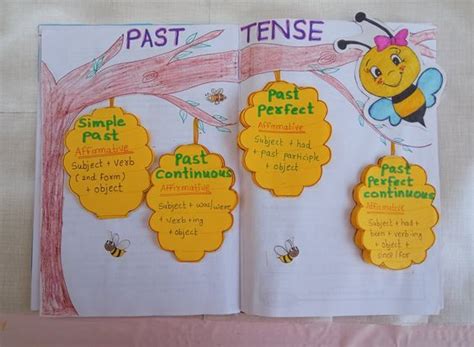 PAST TENSE
Simple
Past
Affirmative
Subject + Verb
(2nd form)
+ object
Past
Continuous
Affirmative
Subject + was/were
+ verb-ing
+ object
Past
Perfect
Affirmative
Subject + had
+ past participle
+ object
Past
Perfect
continuous
Affirmative
Subject + had +
been + verb-ing
+ object +
since/for